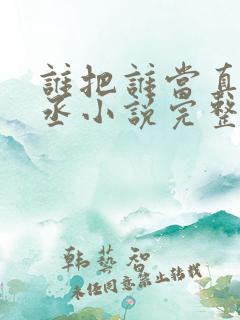 誰把誰當真
丞小說完整
韩藝智
未经同意禁止转载